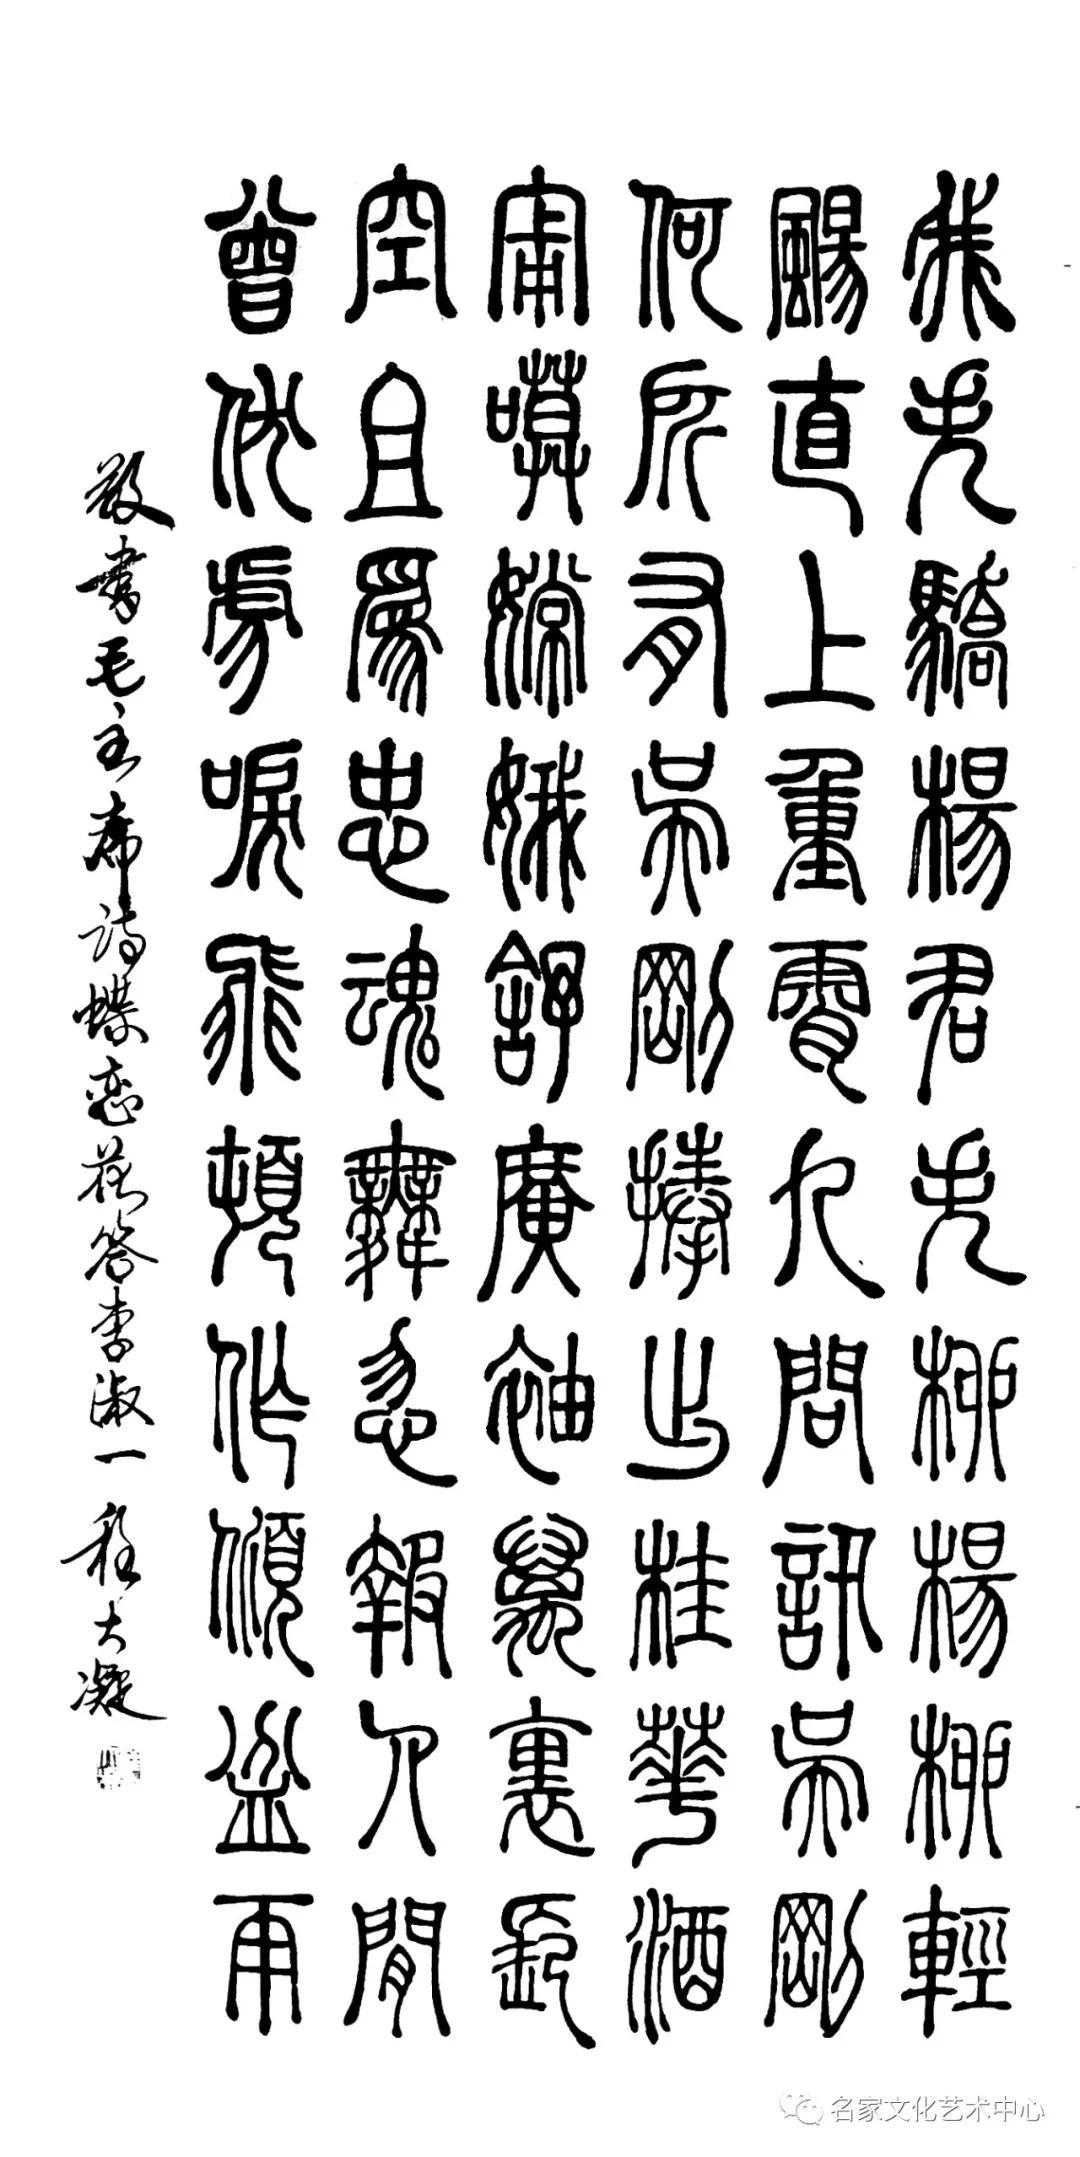 我失驕楊君失柳楊柳輕
颺直上重霄九問訊吳剛
何所有吳剛捧出桂華酒
寂嗼嫦娥舒廣袖萬裏長
空且爲忠魂舞忽報人間
曾伏虎唳飛頓作傾盆雨
敬書毛主席詩蝶恋花答李淑一 程大凝
名家文化艺术中心